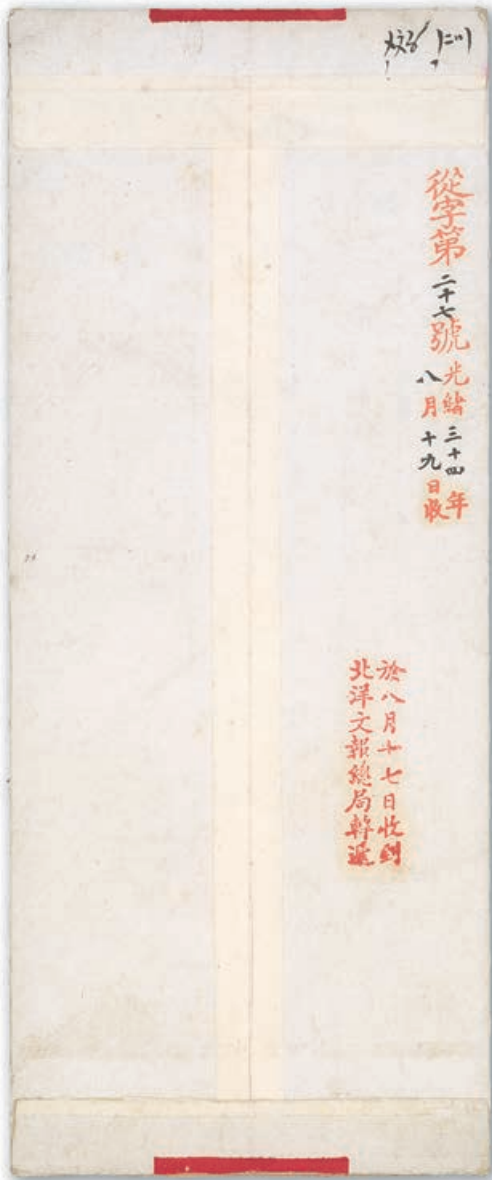 仁川
從字第二十七號
光緒三十四年
八月十九日收
於八月十七日收到
北洋文報總局轉遞